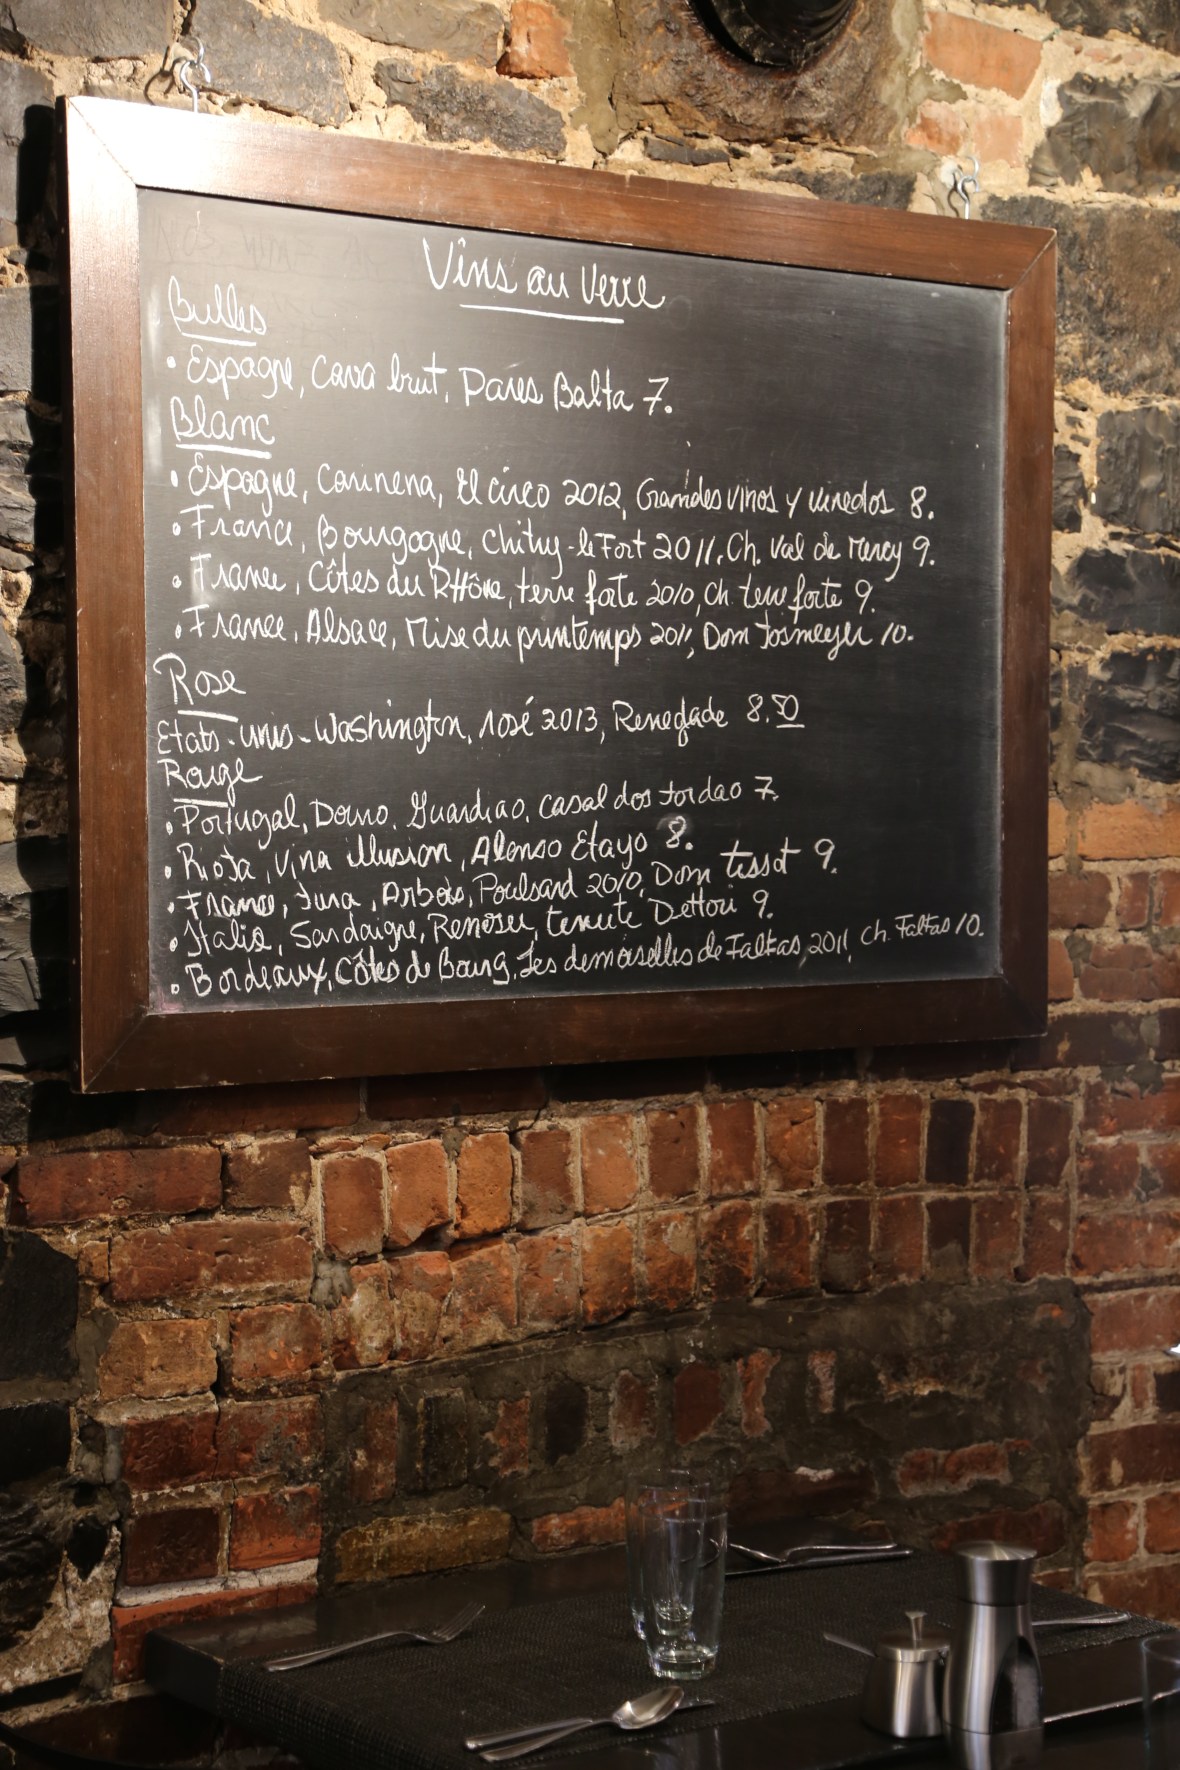 Vins au verre
Bulles
• Espagne, Cava brut, Pares Balta 7.
Blanc
• Espagne, Carinena, El circo 2012, Grandes vinos y vinedos 8.
• France, Bourgogne, Chitry-le Fort 2011, Ch. Val de Mercy 9.
• France, Côtes du Rhône, terre forte 2010, Ch. terre forte 9.
• France, Alsace, Mise du printemps 2011, Dom Josmeyer 10.
Rose
Etats-unis-Washington, rosé 2013, Renegade 8.50
Rouge
• Portugal, Douro, Guardiao, Casal dos Jordao 7.
• Rioja, Vina illusion, Alonso Etayo 8.
• France, Jura, Arbois, Poulsard 2010, Dom tissot 9.
• Italie, Sardaigne, Renosu, tenute Dettori 9.
• Bordeaux, Côtes de Bourg, Les demoiselles de Falfas 2011, Ch. Falfas 10.